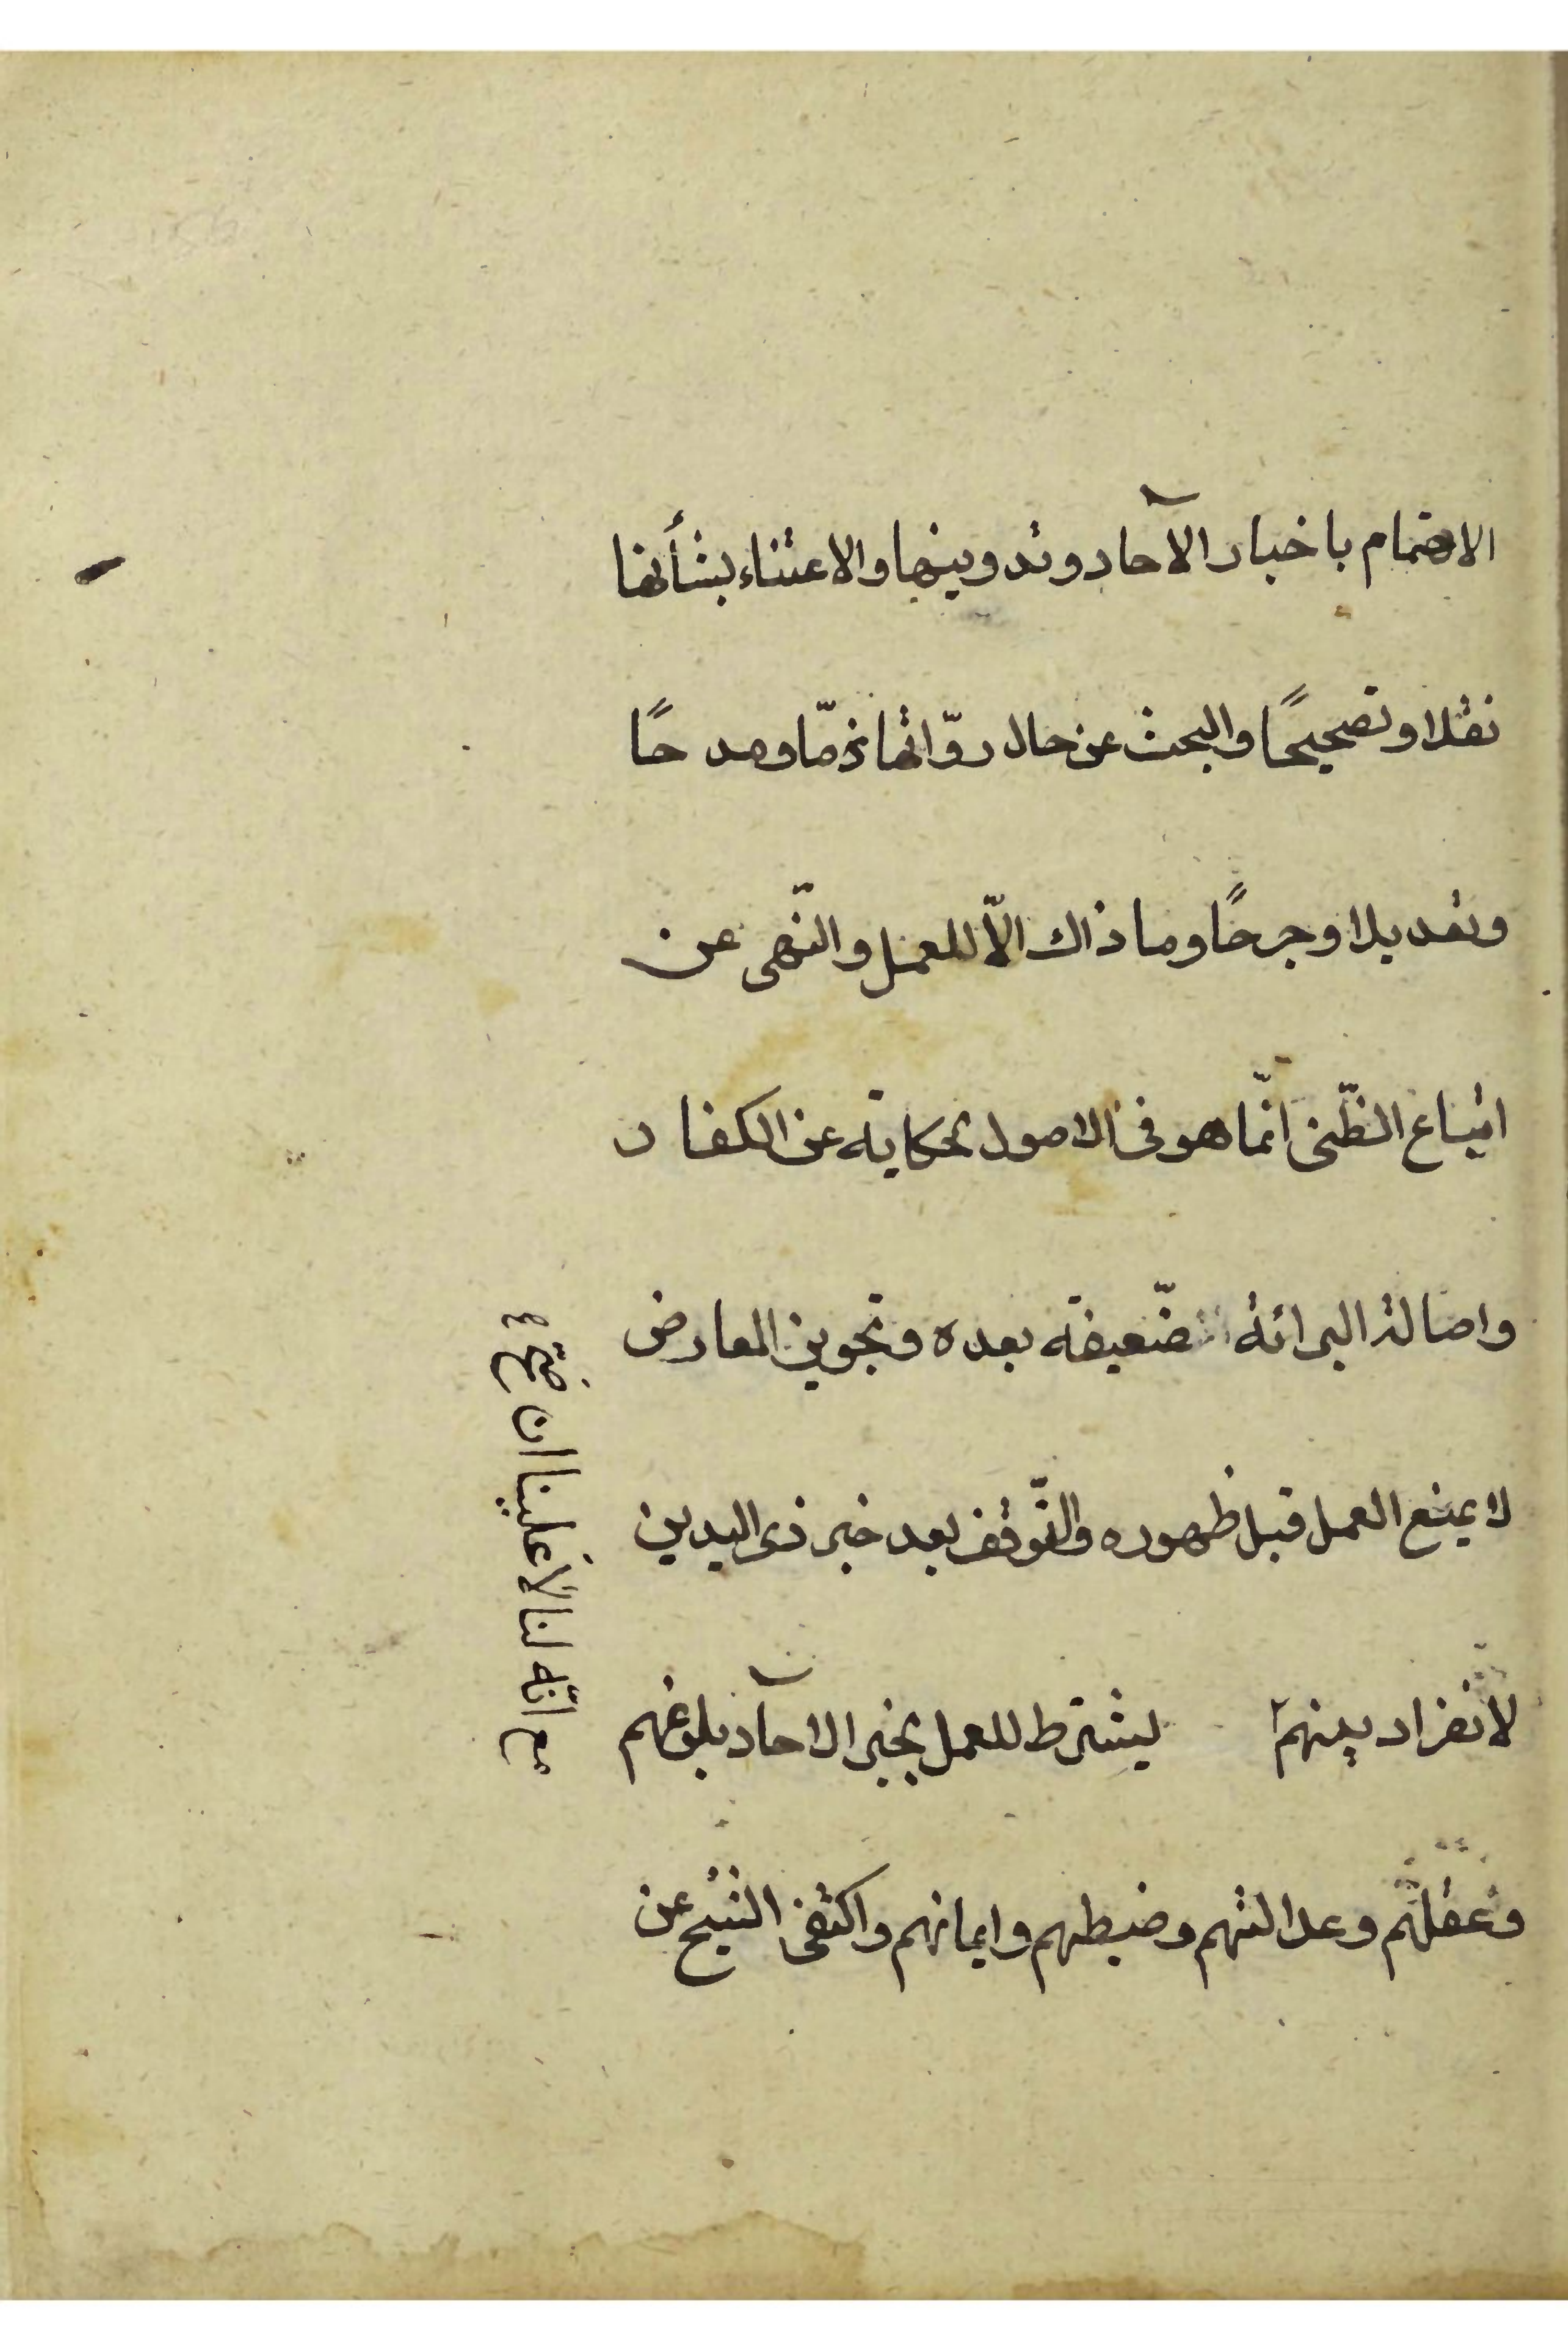 الاهتمام باخبار الآحاد وتدوينها والاعتناء بشأنها
نقلا وتصحيحًا والبحث عن حال روّاتها ذمّا ومدحًا
وتعديلا وجرحًا وما ذاك الّا للعمل والنّهى عن
اتباع الظّن انّما هو فى الاصول بحكايته عن الكفار
واصالة البرائة ضّعيفة بعده وتجويز المعارض
لا يمنع العمل قبل ظهوره والتّوقف بعد خبر ذى اليدين
لانفراد بينهم يشترط للعمل بخبر الاحآد بلوغهم
وعقلهم وعدالتهم وضبطهم وايمانهم واكتفى الشيخ عن
مع انّه لنا لا علينا ان